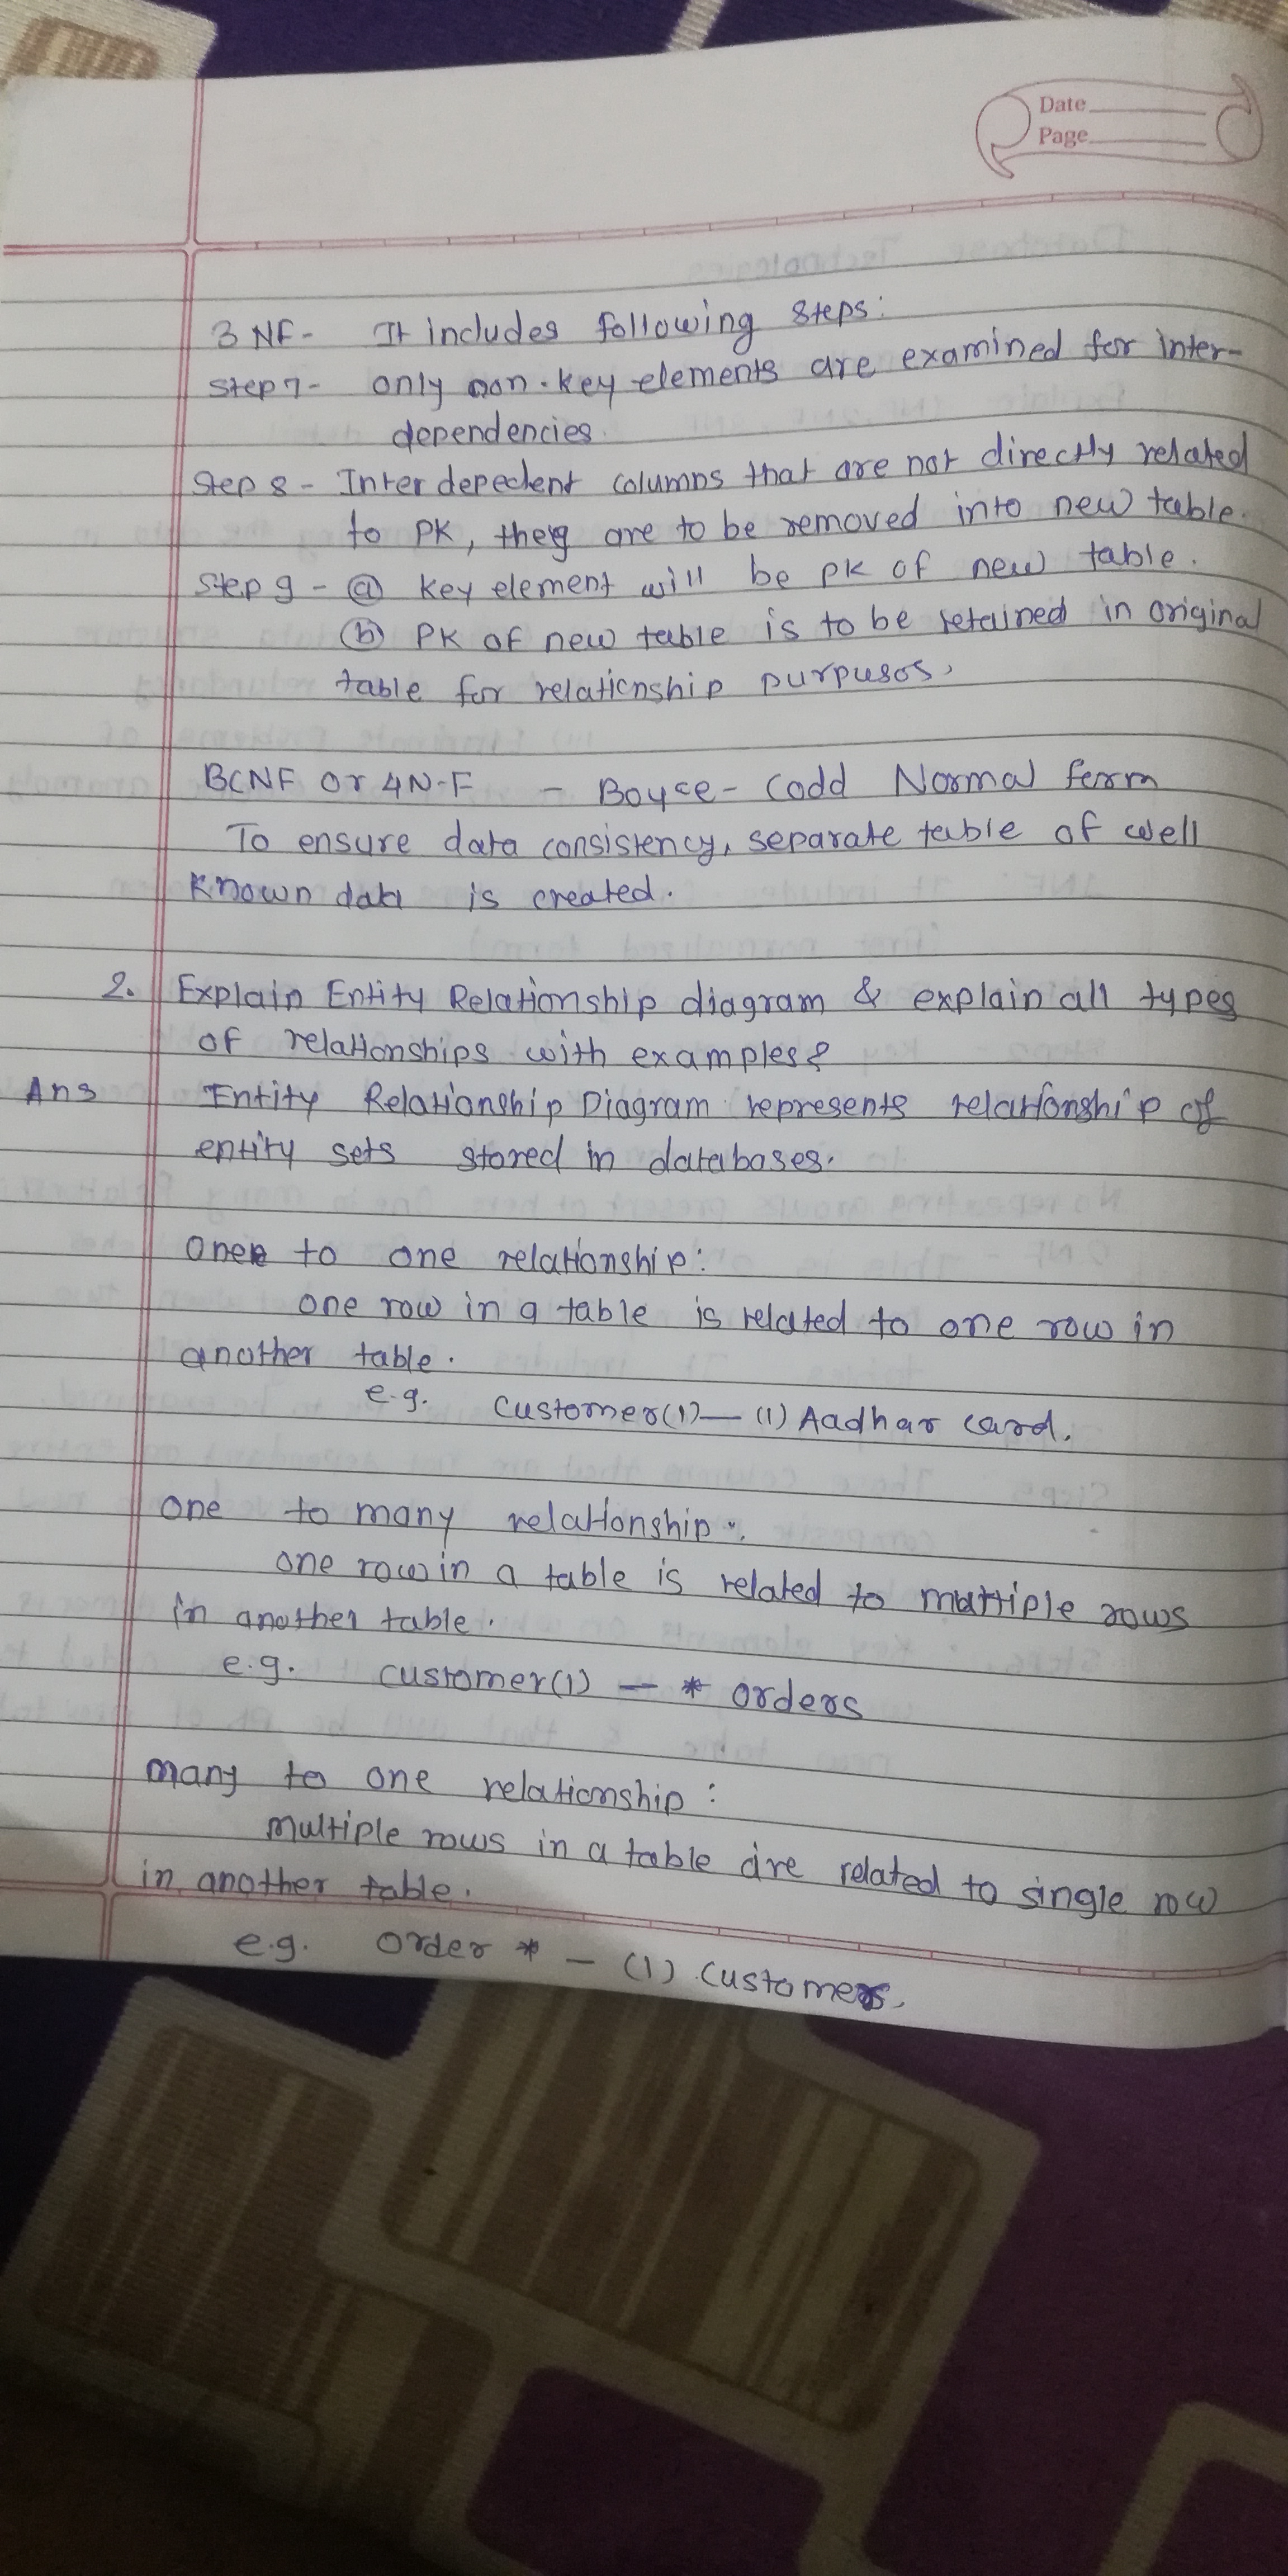 Date
Page
3 NF - It includes following steps:
Step 7 - only non-key elements are examined for inter-
dependencies.
Step 8 - Interdepedent columns that are not directly related
to PK, they are to be removed into new table.
Step 9 - (a) key element will be PK of new table.
(b) PK of new table is to be retained in original
table for relationship purpusos.
BCNF or 4N-F - Boyce-Codd Normal form
To ensure data consistency, separate table of well
known data is created.
2. Explain Entity Relationship diagram & explain all types
of relationships with examples?
Ans Entity Relationship Diagram represents relationship of
entity sets stored in databases.
one to one relationship:
one row in a table is related to one row in
another table.
e.g. Customer(1) — (1) Aadhar card.
one to many relationship:
one row in a table is related to multiple rows
in another table.
e.g. customer(1) — * orders
many to one relationship:
multiple rows in a table are related to single row
in another table.
e.g. order * — (1) customers.